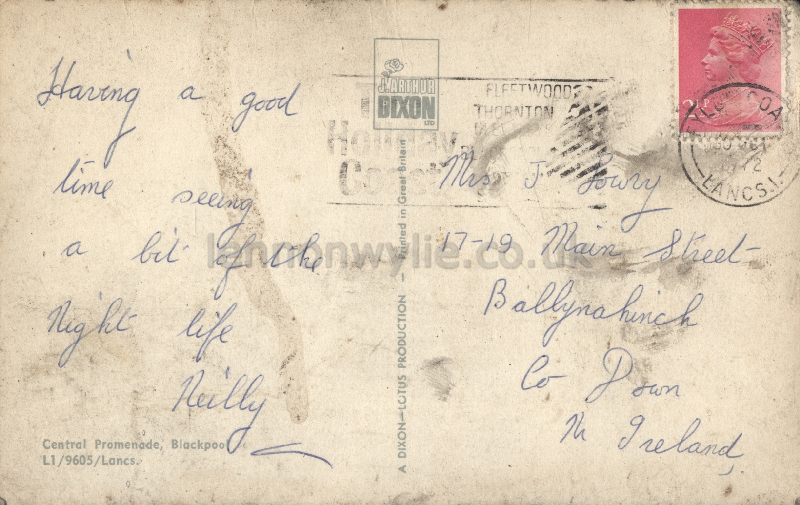 Having a good
time seeing
a bit of the
Night life
Neilly
Central Promenade, Blackpool
L1/9605/Lancs.
J. ARTHUR
DIXON
LTD
A DIXON—LOTUS PRODUCTION — Printed in Great Britain
Holiday
Coast
FLEETWOOD
THORNTON
2½P
FYLDE COAST
1972
LANCS.
Mrs J Lowry
17-19 Main Street
Ballynahinch
Co Down
N Ireland,
lannonwylie.co.uk